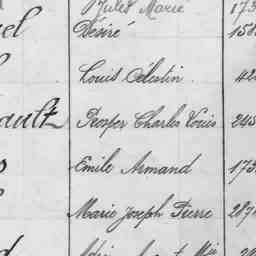 Jules Marie 173
el Désiré 158
Louis Célestin 42
ault Prosper Charles Louis 245
s Emile Armand 173
Marie Joseph Pierre 287
d